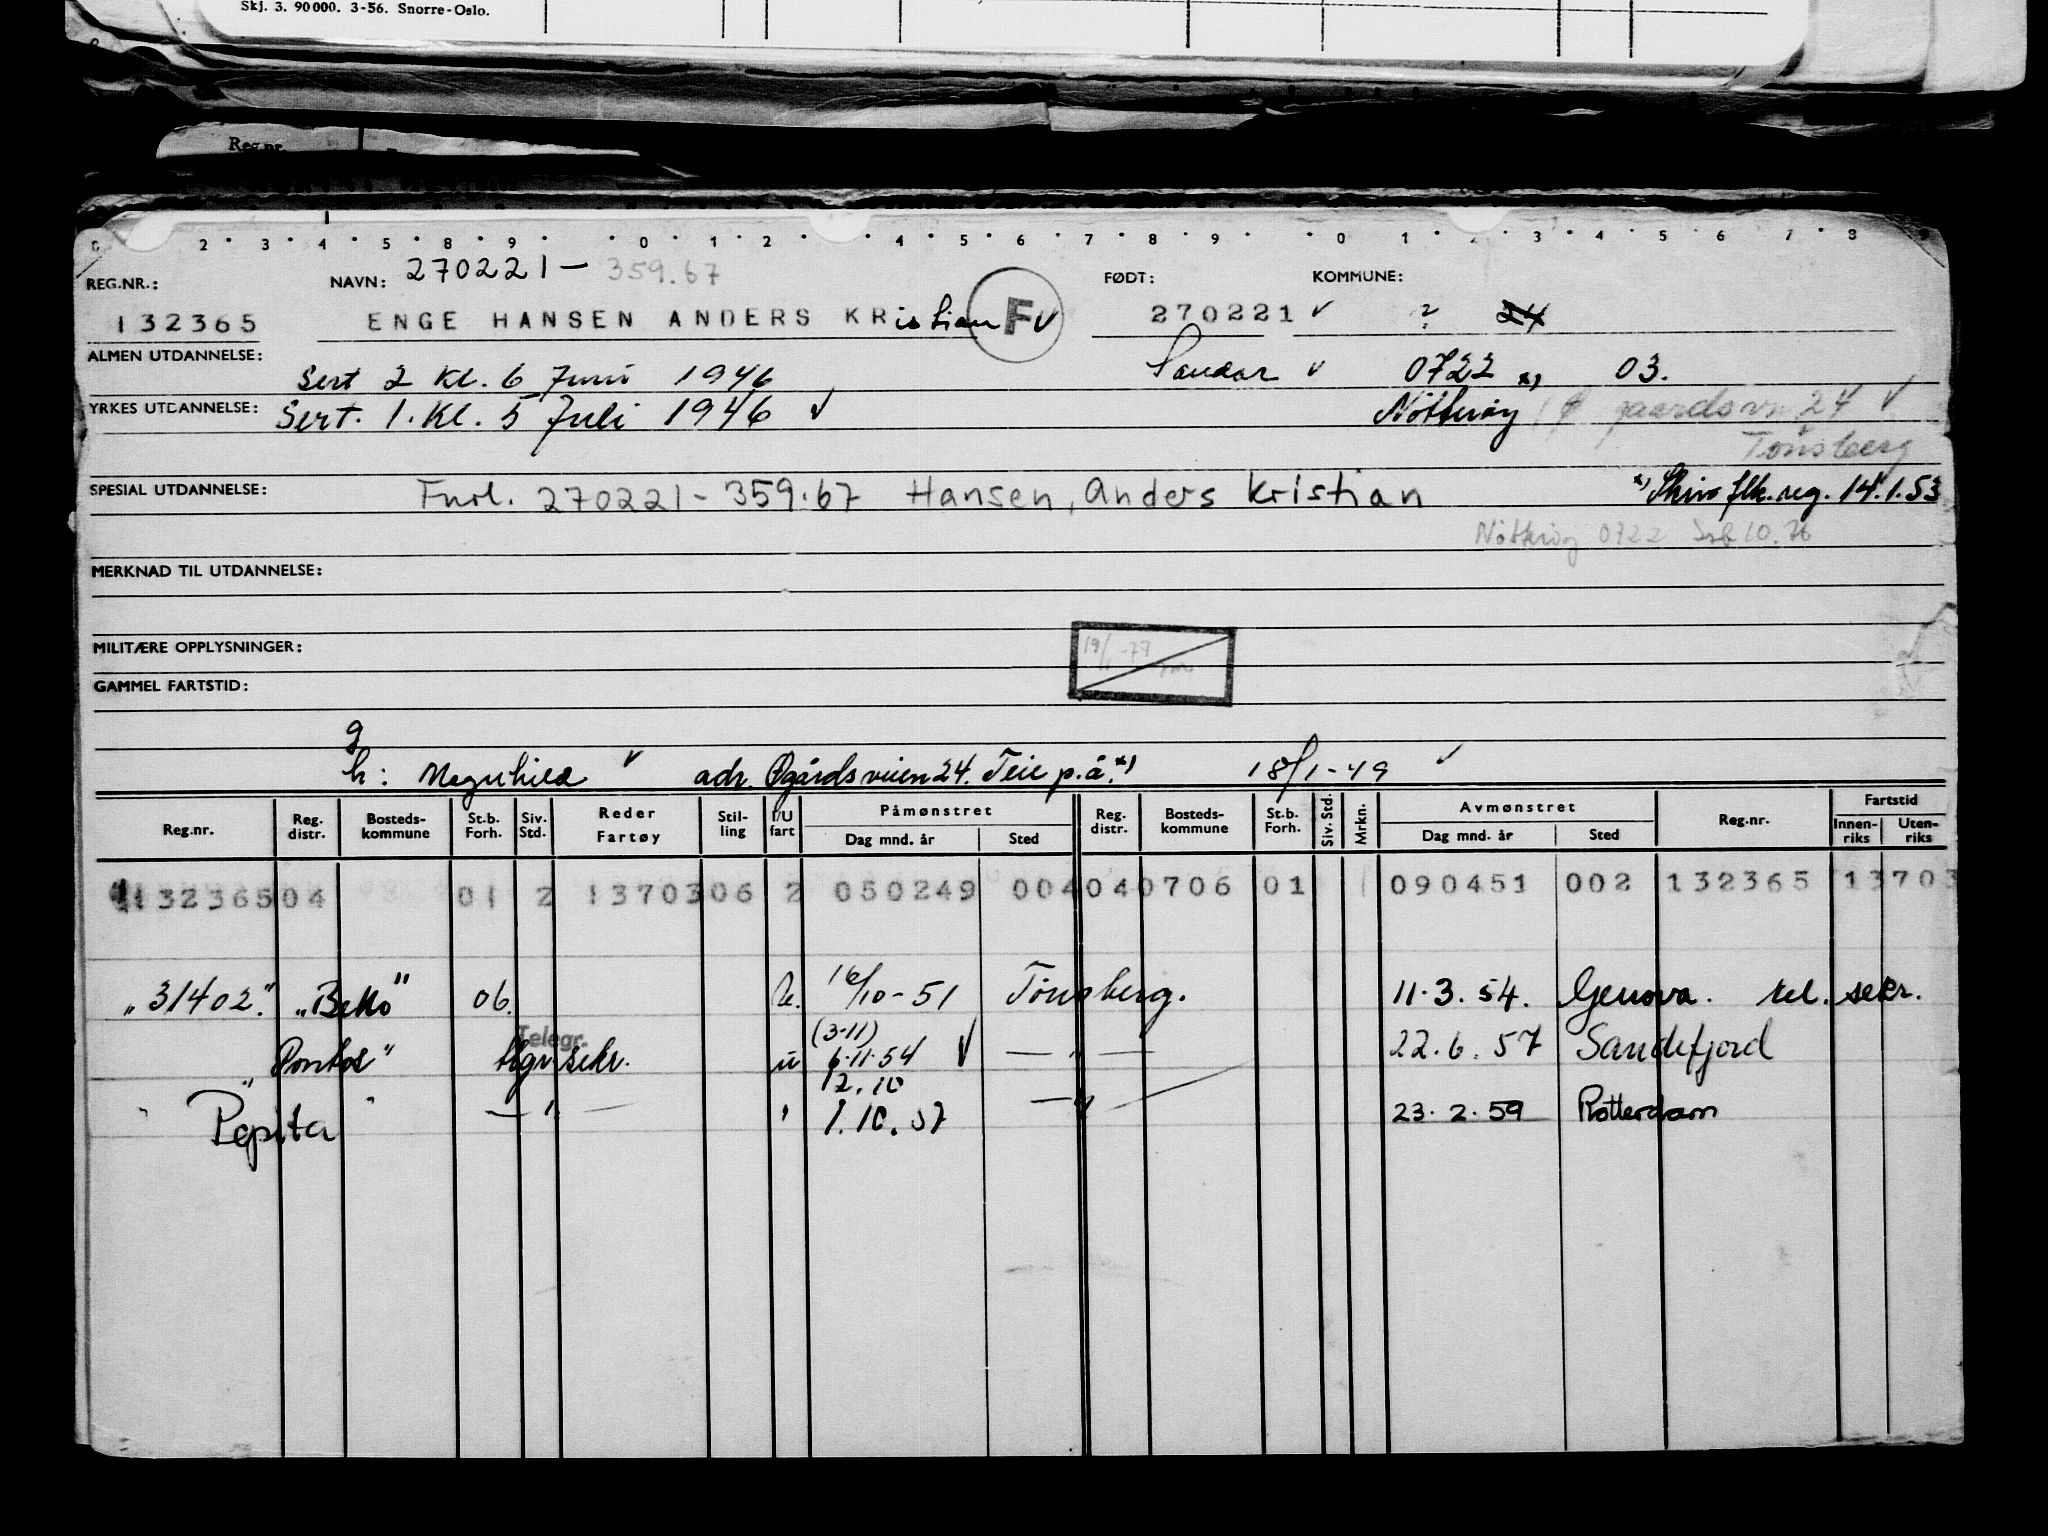 Skj. 3. 90000. 3-56. Snorre-Oslo.
Reg.nr.
2 3 4 5 8 9 4 0 1 2 4 5 6 7 8 9 0 1 2 3 4 5 6 7 8 9
REG.NR.: NAVN: 270221 - 359.67 FØDT: KOMMUNE:
132365 ENGE HANSEN ANDERS KRistian F v 270221 v ? 24
ALMEN UTDANNELSE: Sert 2 Kl. 6 Juni 1946 Sandar v 0722 x) 03.
YRKES UTDANNELSE: Sert. 1. Kl. 5 Juli 1946 v Nøtterøy gaardsvn 24 v
Tønsberg
SPESIAL UTDANNELSE: Fnrl. 270221-359.67 Hansen, Anders Kristian x) Skriv flk.reg. 14.1.53
Nøtterøy 0722 10.76
MERKNAD TIL UTDANNELSE:
MILITÆRE OPPLYSNINGER: 19/1-77
GAMMEL FARTSTID:
g
h: Magnhild v adr. Øgårdsveien 24. Teie p.å. x) 18/1-49 v
Reg.nr. Reg. distr. Bosteds-kommune St.b. Forh. Siv. Std. Reder Fartøy Stil-ling I/U fart Påmønstret Dag mnd. år Sted Reg. distr. Bosteds-kommune St.b. Forh. Siv. Std. Mrkn. Avmønstret Dag mnd. år Sted Reg.nr. Fartstid Innen-riks Uten-riks
132365 04 01 2 13703 06 2 050249 004 04 0706 01 090451 002 132365 13703
"31402." "Bello" 06. U. 16/10-51 Tønsberg. 11.3.54. Genova. tel. sekr.
Telegr. (3-11)
"Pontos" tlgr. sekr. u 6.11.54 v — " — 22.6.57 Sandefjord
12.10
" Pepita " — " — " 1.10.57 — " — 23.2.59 Rotterdam